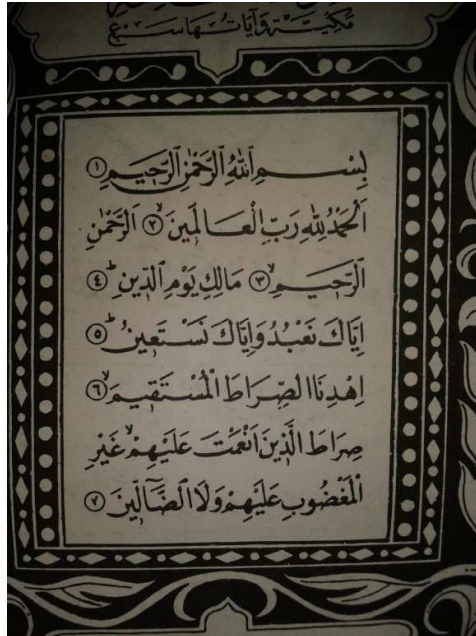 مكيّة وآياتها سبع
بِسْمِ اللهِ الرَّحْمٰنِ الرَّحِيمِ ۝١
اَلْحَمْدُ لِلّٰهِ رَبِّ الْعَالَمِينَۙ ۝٢ اَلرَّحْمٰنِ
الرَّحِيمِۙ ۝٣ مَالِكِ يَوْمِ الدِّينِۜ ۝٤
اِيَّاكَ نَعْبُدُ وَاِيَّاكَ نَسْتَعِينُۜ ۝٥
اِهْدِنَا الصِّرَاطَ الْمُسْتَقِيمَۙ ۝٦
صِرَاطَ الَّذِينَ اَنْعَمْتَ عَلَيْهِمْۙ غَيْرِ
الْمَغْضُوبِ عَلَيْهِمْ وَلَا الضَّٓالِّينَ ۝٧